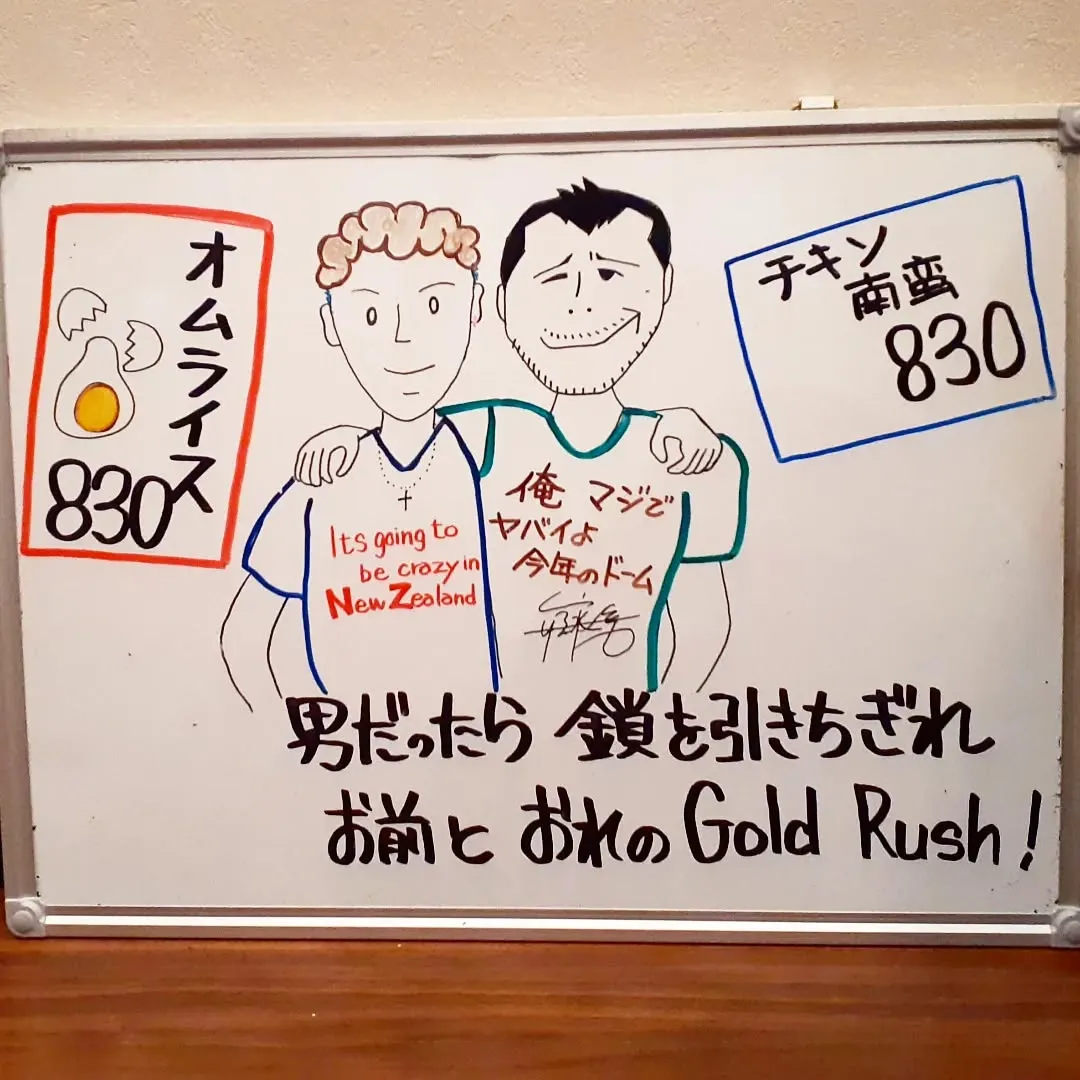 オムライス
830
チキン
南蛮
830
Its going to
be crazy in
New Zealand
俺 マジで
ヤバイよ
今年のドーム
男だったら 鎖を引きちぎれ
お前と おれの Gold Rush!